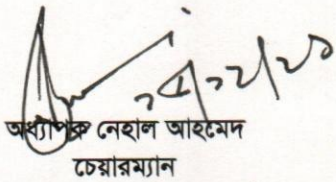 অধ্যাপক নেহাল আহমেদ
চেয়ারম্যান